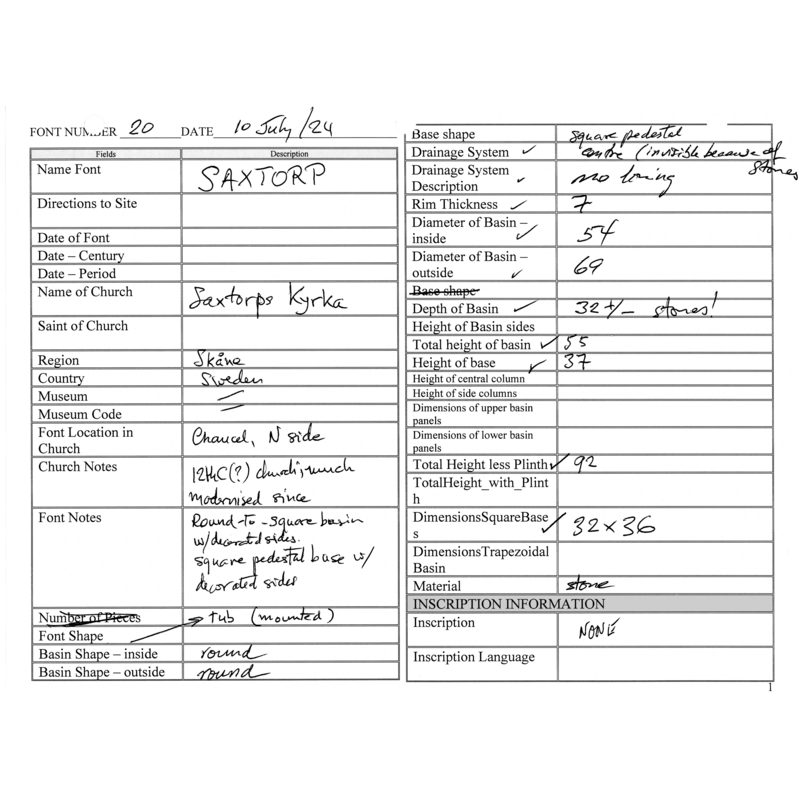 FONT NUMBER 20 DATE 10 July/24
Fields Description
Name Font SAXTORP
Directions to Site
Date of Font
Date – Century
Date – Period
Name of Church Saxtorps Kyrka
Saint of Church
Region Skåne
Country Sweden
Museum —
Museum Code —
Font Location in Chancel, N side
Church
Church Notes 12thC(?) church; much
modernised since
Font Notes Round-to-square basin
w/decorated sides.
square pedestal base w/
decorated sides
Number of Pieces tub (mounted)
Font Shape
Basin Shape – inside round
Basin Shape – outside round
Base shape square pedestal
Drainage System ✓ centre (invisible because of
stones
Drainage System ✓ no lining
Description
Rim Thickness ✓ 7
Diameter of Basin – 54
inside ✓
Diameter of Basin – 69
outside ✓
Base shape
Depth of Basin ✓ 32 +/– stones!
Height of Basin sides
Total height of basin ✓ 55
Height of base ✓ 37
Height of central column
Height of side columns
Dimensions of upper basin
panels
Dimensions of lower basin
panels
Total Height less Plinth ✓ 92
TotalHeight_with_Plint
h
DimensionsSquareBase ✓ 32 x 36
s
DimensionsTrapezoidal
Basin
Material stone
INSCRIPTION INFORMATION
Inscription NONE
Inscription Language
1